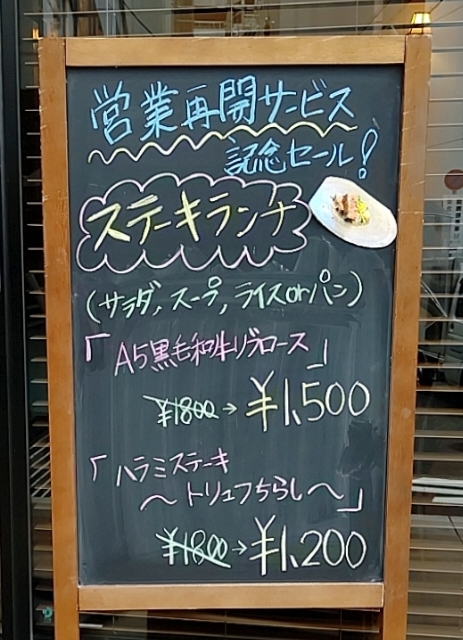 営業再開サービス
記念セール!
ステーキランチ
(サラダ,スープ,ライスorパン)
「A5黒毛和牛リブロース」
¥1800→¥1,500
「ハラミステーキ
～トリュフちらし～」
¥1800→¥1,200